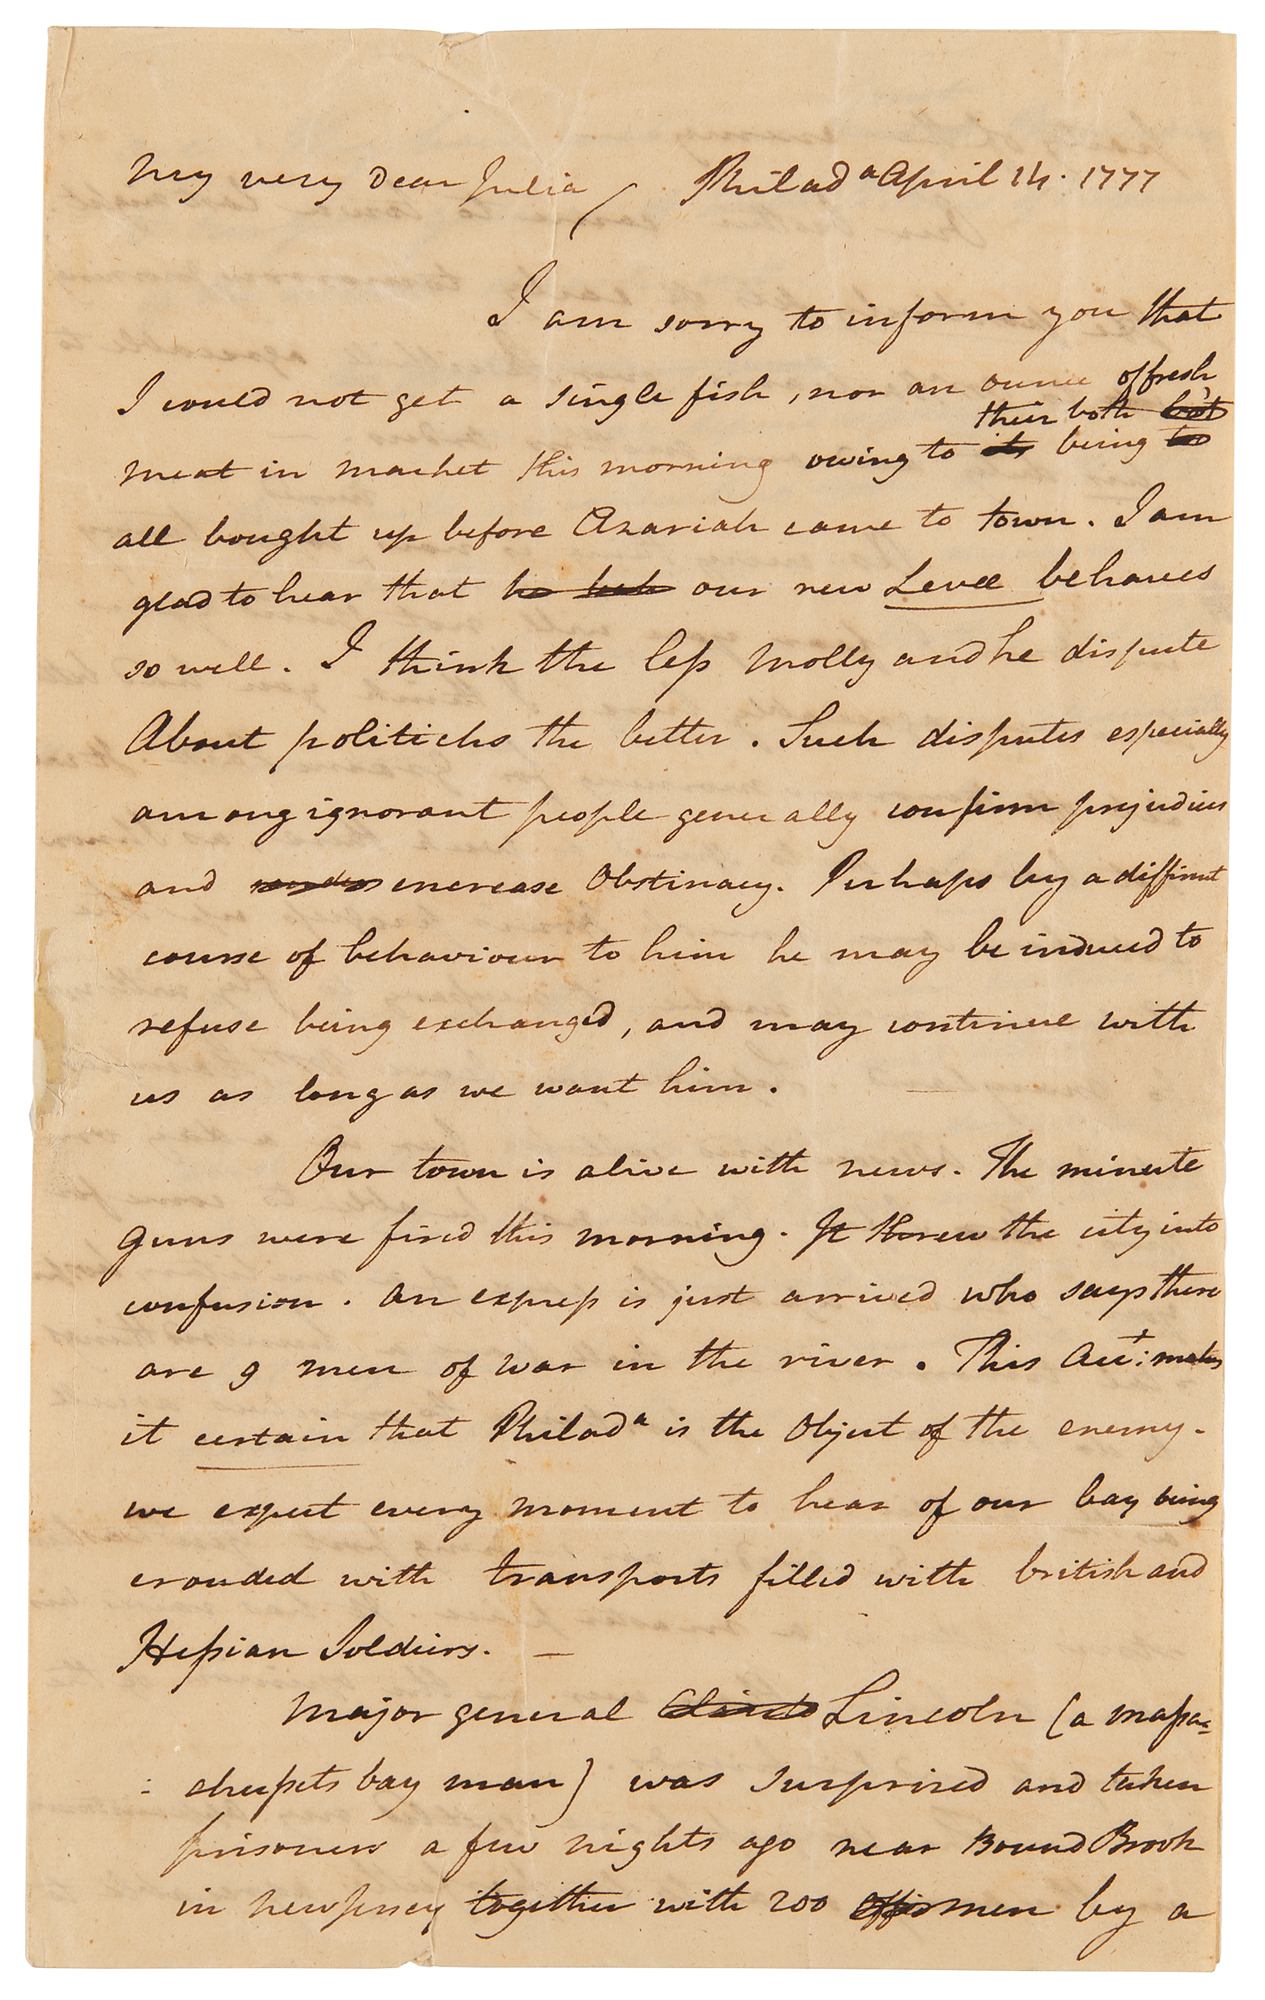 My very Dear Julia, Philad<sup>a</sup> April 14. 1777
I am sorry to inform you that
I could not get a single fish, nor an ounce of fresh
their both
meat in market this morning owing to being
all bought up before Azariah came to town. I am
glad to hear that our new Levee behaves
so well. I think the less Molly and he dispute
About politicks the better. Such disputes especially
among ignorant people generally confirm prejudices
and encrease Obstinacy. Perhaps by a different
course of behaviour to him he may be induced to
refuse being exchanged, and may continue with
us as long as we want him.
Our town is alive with news. The minute
guns were fired this morning. It threw the city into
confusion. An express is just arrived who says there
are 9 men of war in the river. This Acc<sup>t</sup>: makes
it certain that Philad<sup>a</sup> is the Object of the enemy.
we expect every moment to hear of our bay being
crouded with transports filled with british and
Hessian Soldiers. —
Major general Lincoln (a massa=
: chussets bay man) was surprised and taken
prisoner a few nights ago near Bound Brook
in new Jersey together with 200 men by a